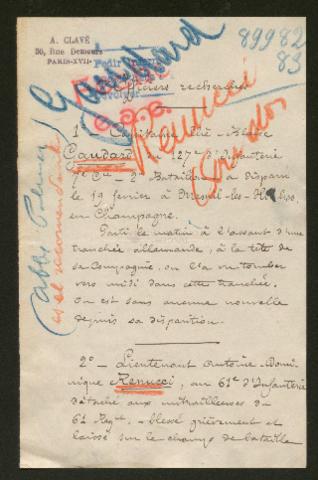 A. CLAVÉ
30, Rue Demours
PARIS-XVIIe
Gaudard
89982
83
Officiers recherchés
Renucci
1 – Capitaine Pié-Blaise
Gaudard du 127e d'Infanterie
7e Cie 2e Bataillon, a disparu
le 19 février à Mesnil-les-Hurlus,
en Champagne.
Parti le matin à l'assaut d'une
tranchée allemande, à la tête de
sa Compagnie, on l'a vu tomber
vers midi dans cette tranchée.
On est sans aucune nouvelle
depuis sa disparition.
2° – Lieutenant Antoine-Domi-
nique Renucci, au 61e d'Infanterie
détaché aux mitrailleuses du
6e Régt – blessé grièvement et
laissé sur le champ de bataille